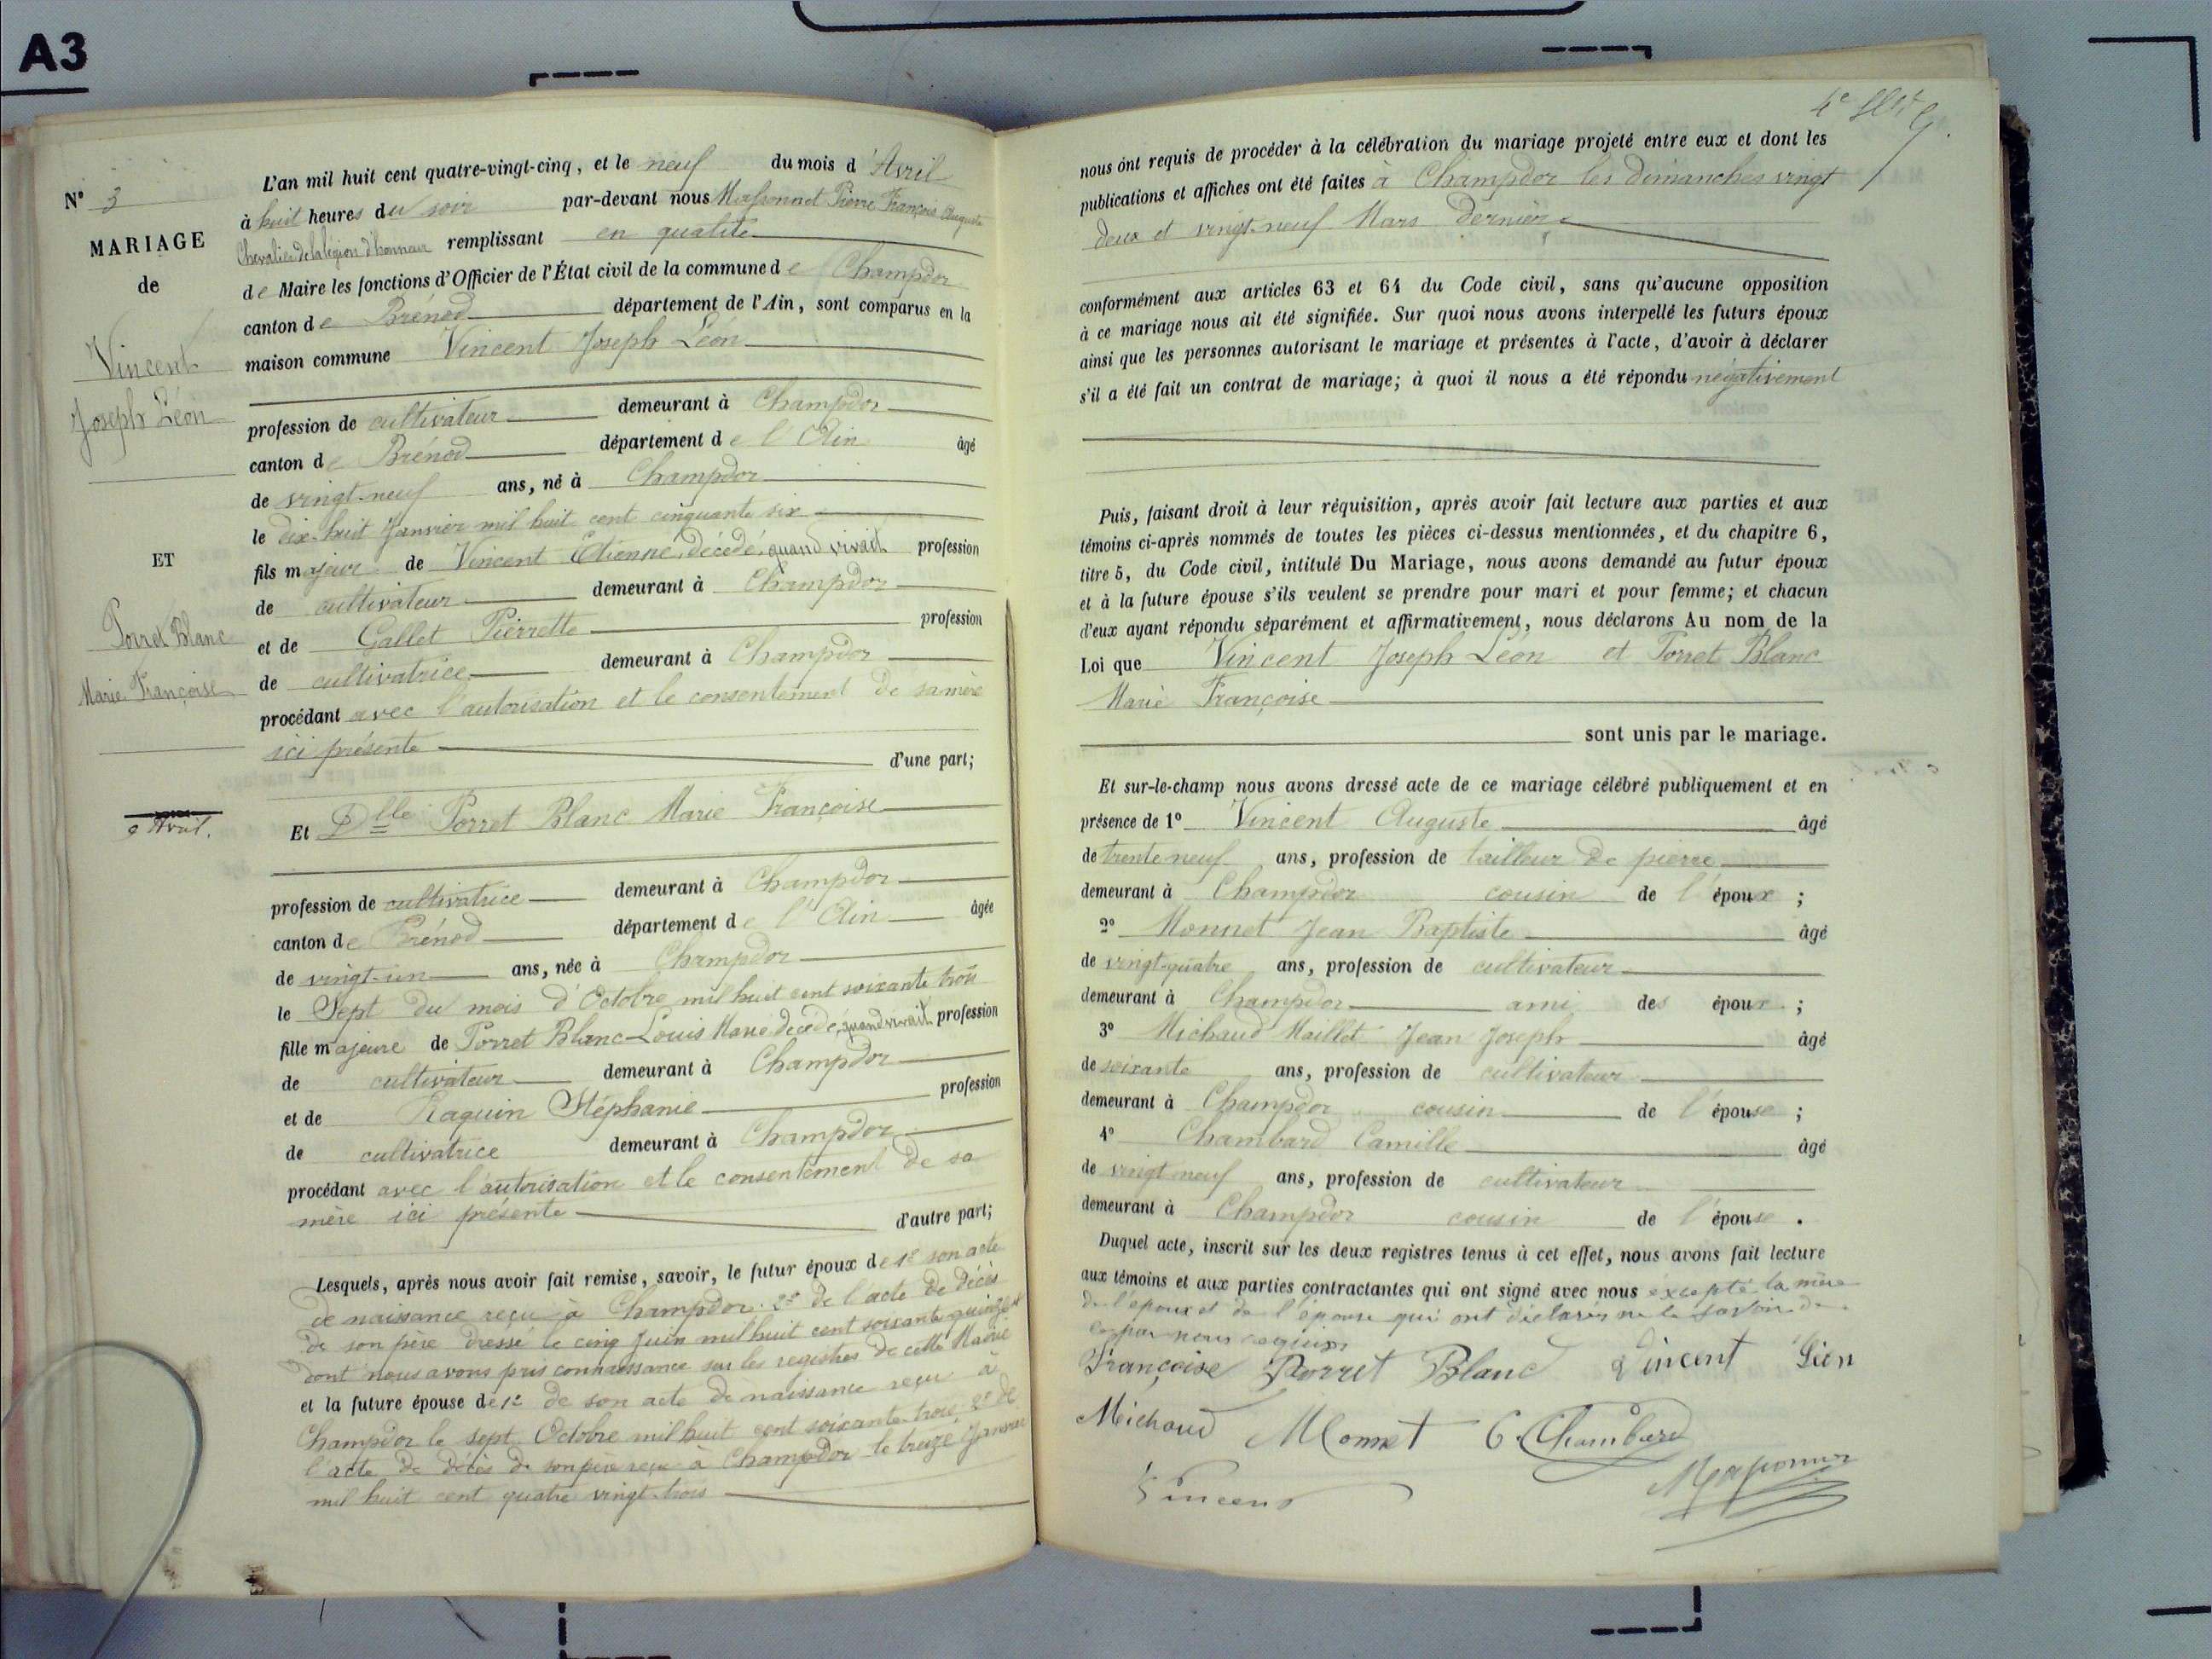 A3
N° 3
MARIAGE
de
Vincent
Joseph Léon
ET
Porret Blanc
Marie Françoise
9 Avril.
L'an mil huit cent quatre-vingt-cinq, et le neuf du mois d'Avril
à huit heures du soir par-devant nous Massonnet Pierre François Auguste
Chevalier de la légion d'honneur remplissant en qualité
de Maire les fonctions d'Officier de l'État civil de la commune de Champdor
canton de Brénod département de l'Ain, sont comparus en la
maison commune Vincent Joseph Léon
profession de cultivateur demeurant à Champdor
canton de Brénod département de l'Ain âgé
de vingt-neuf ans, né à Champdor
le dix-huit Janvier mil huit cent cinquante six
fils majeur de Vincent Etienne, décédé, quand vivait profession
de cultivateur demeurant à Champdor
et de Gallet Pierrette profession
de cultivatrice demeurant à Champdor
procédant avec l'autorisation et le consentement de sa mère
ici présente d'une part;
Et Dlle Porret Blanc Marie Françoise
profession de cultivatrice demeurant à Champdor
canton de Brénod département de l'Ain âgée
de vingt-un ans, née à Champdor
le Sept du mois d'Octobre mil huit cent soixante trois
fille majeure de Porret Blanc Louis Marie décédé, quand vivait profession
de cultivateur demeurant à Champdor
et de Raquin Stéphanie profession
de cultivatrice demeurant à Champdor
procédant avec l'autorisation et le consentement de sa
mère ici présente d'autre part;
Lesquels, après nous avoir fait remise, savoir, le futur époux de 1° son acte
de naissance reçu à Champdor. 2° de l'acte de décès
de son père dressé le cinq Juin mil huit cent soixante quinze
dont nous avons pris connaissance sur les registres de cette Mairie
et la future épouse de 1° de son acte de naissance reçu à
Champdor le sept Octobre mil huit cent soixante-trois, 2° de
l'acte de décès de son père reçu à Champdor le treize Janvier
mil huit cent quatre vingt-trois
4e
nous ont requis de procéder à la célébration du mariage projeté entre eux et dont les
publications et affiches ont été faites à Champdor les dimanches vingt
deux et vingt-neuf Mars dernier
conformément aux articles 63 et 64 du Code civil, sans qu'aucune opposition
à ce mariage nous ait été signifiée. Sur quoi nous avons interpellé les futurs époux
ainsi que les personnes autorisant le mariage et présentes à l'acte, d'avoir à déclarer
s'il a été fait un contrat de mariage; à quoi il nous a été répondu négativement
Puis, faisant droit à leur réquisition, après avoir fait lecture aux parties et aux
témoins ci-après nommés de toutes les pièces ci-dessus mentionnées, et du chapitre 6,
titre 5, du Code civil, intitulé Du Mariage, nous avons demandé au futur époux
et à la future épouse s'ils veulent se prendre pour mari et pour femme; et chacun
d'eux ayant répondu séparément et affirmativement, nous déclarons Au nom de la
Loi que Vincent Joseph Léon et Porret Blanc
Marie Françoise
sont unis par le mariage.
Et sur-le-champ nous avons dressé acte de ce mariage célébré publiquement et en
présence de 1° Vincent Auguste âgé
de trente neuf ans, profession de tailleur de pierre
demeurant à Champdor cousin de l'époux ;
2° Monnet Jean Baptiste âgé
de vingt-quatre ans, profession de cultivateur
demeurant à Champdor ami des époux ;
3° Michaud Maillet Jean Joseph âgé
de soixante ans, profession de cultivateur
demeurant à Champdor cousin de l'épouse ;
4° Chambard Camille âgé
de vingt-neuf ans, profession de cultivateur
demeurant à Champdor cousin de l'épouse .
Duquel acte, inscrit sur les deux registres tenus à cet effet, nous avons fait lecture
aux témoins et aux parties contractantes qui ont signé avec nous excepté la mère
de l'époux et de l'épouse qui ont déclarés ne le savoir de
ce par nous requises
Françoise Porret Blanc Vincent Léon
Michaud Monnet C. Chambard
Vincent Massonnet